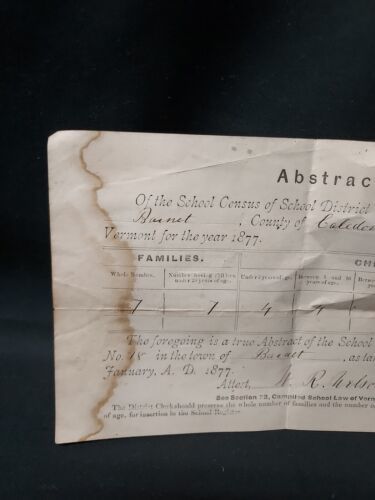 Abstrac
Of the School Census of School District
Barnet, County of Caledon
Vermont for the year 1877.
FAMILIES. CH
Whole Number. Number having children under 20 years of age. Under 5 years of age. Between 5 and years of age. Betw
7 7 4 4
The foregoing is a true Abstract of the School
No. 18 in the town of Barnet, as ta
January, A. D. 1877.
Attest, W. R.
See Section 73, Compiled School Law of Verm
The District Clerk should preserve the whole number of families and the number o
of age, for insertion in the School Register.